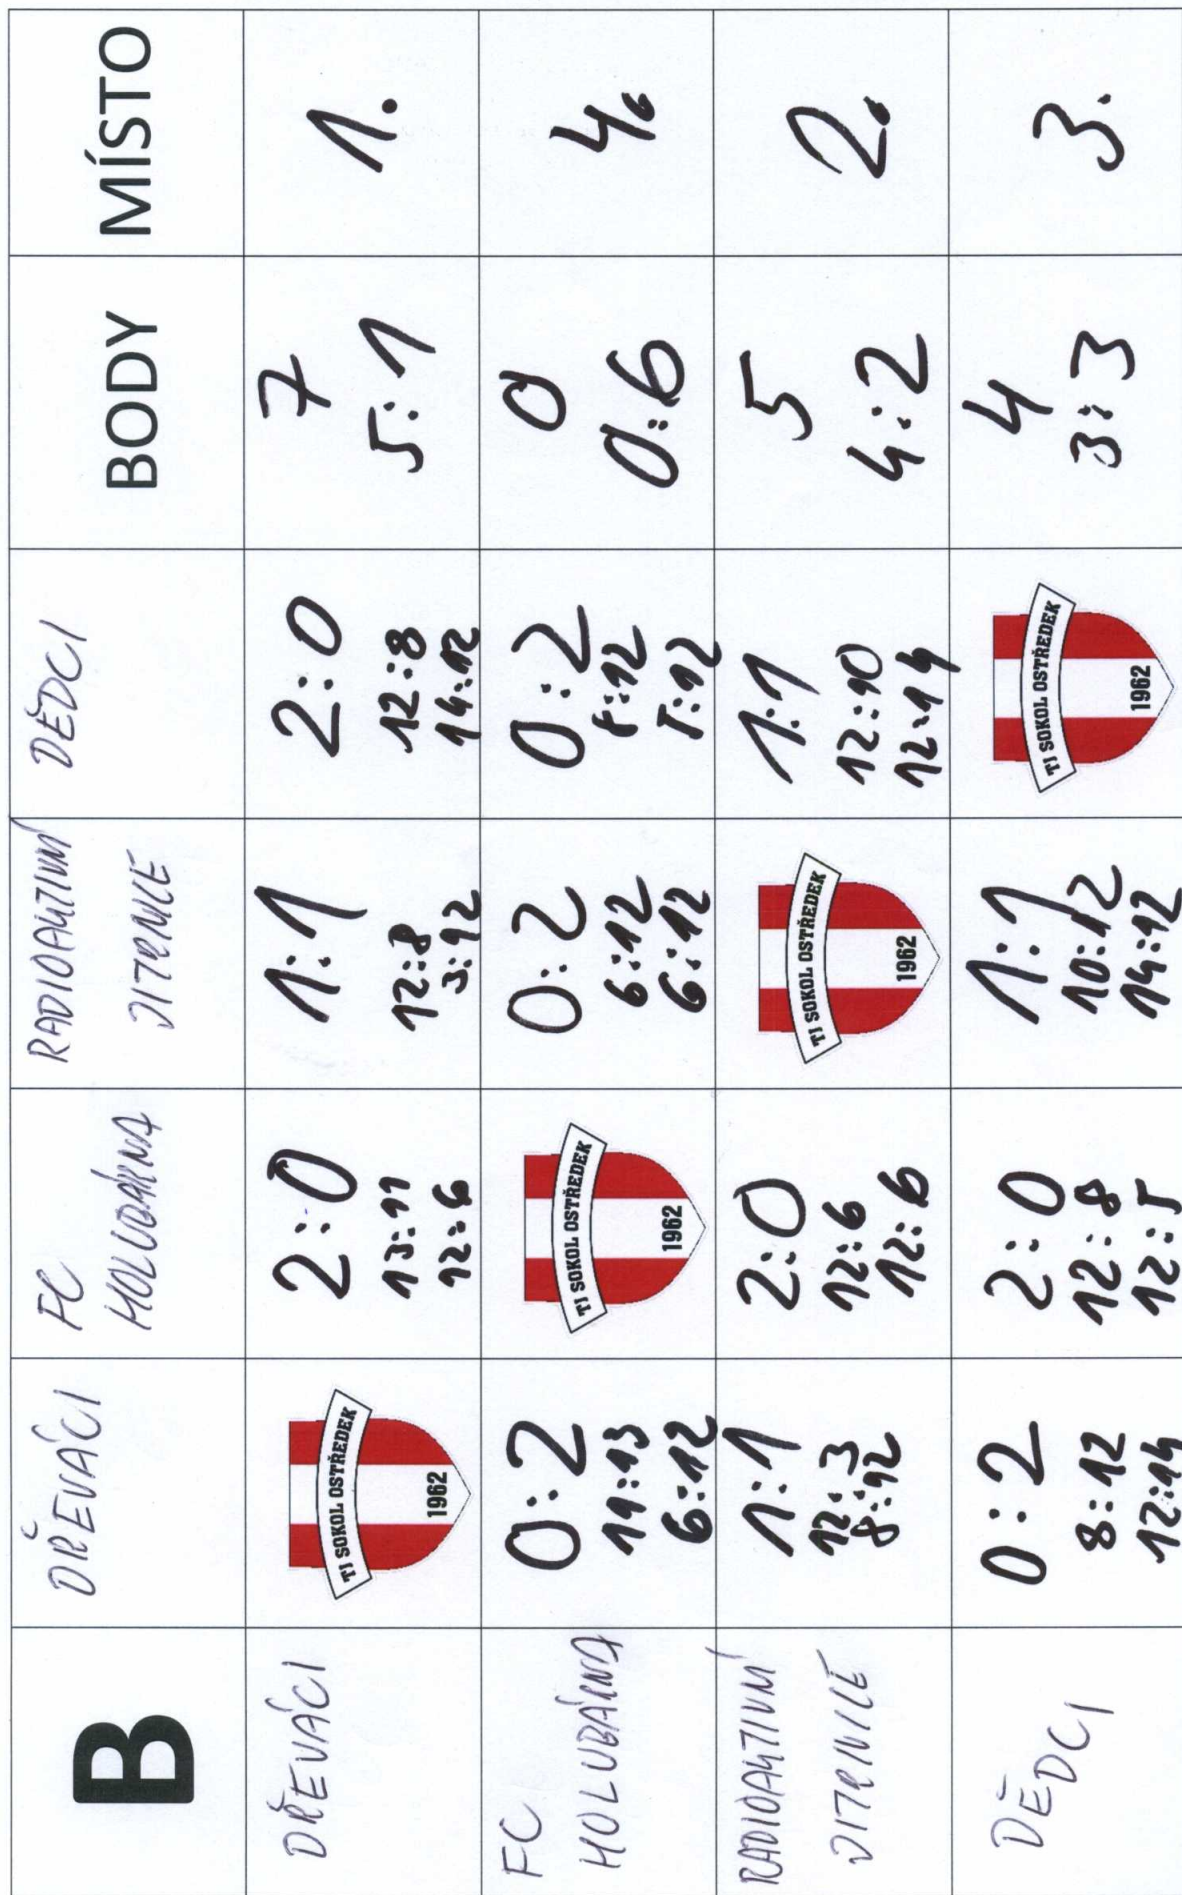 B
DŘEVÁCI
FC
HOLUBÁRNA
RADIOAKTIVNÍ
JITRNICE
DĚDCI
BODY
MÍSTO
DŘEVÁCI
TJ SOKOL OSTŘEDEK
1962
2:0
13:11
12:6
1:1
12:8
3:12
2:0
12:8
14:12
7
5:1
1.
FC
HOLUBÁRNA
0:2
11:13
6:12
TJ SOKOL OSTŘEDEK
1962
0:2
6:12
6:12
0:2
8:12
5:12
0
0:6
4.
RADIOAKTIVNÍ
JITRNICE
1:1
12:3
8:12
2:0
12:6
12:6
TJ SOKOL OSTŘEDEK
1962
1:1
12:10
12:14
5
4:2
2.
DĚDCI
0:2
8:12
12:14
2:0
12:8
12:5
1:1
10:12
14:12
TJ SOKOL OSTŘEDEK
1962
4
3:3
3.